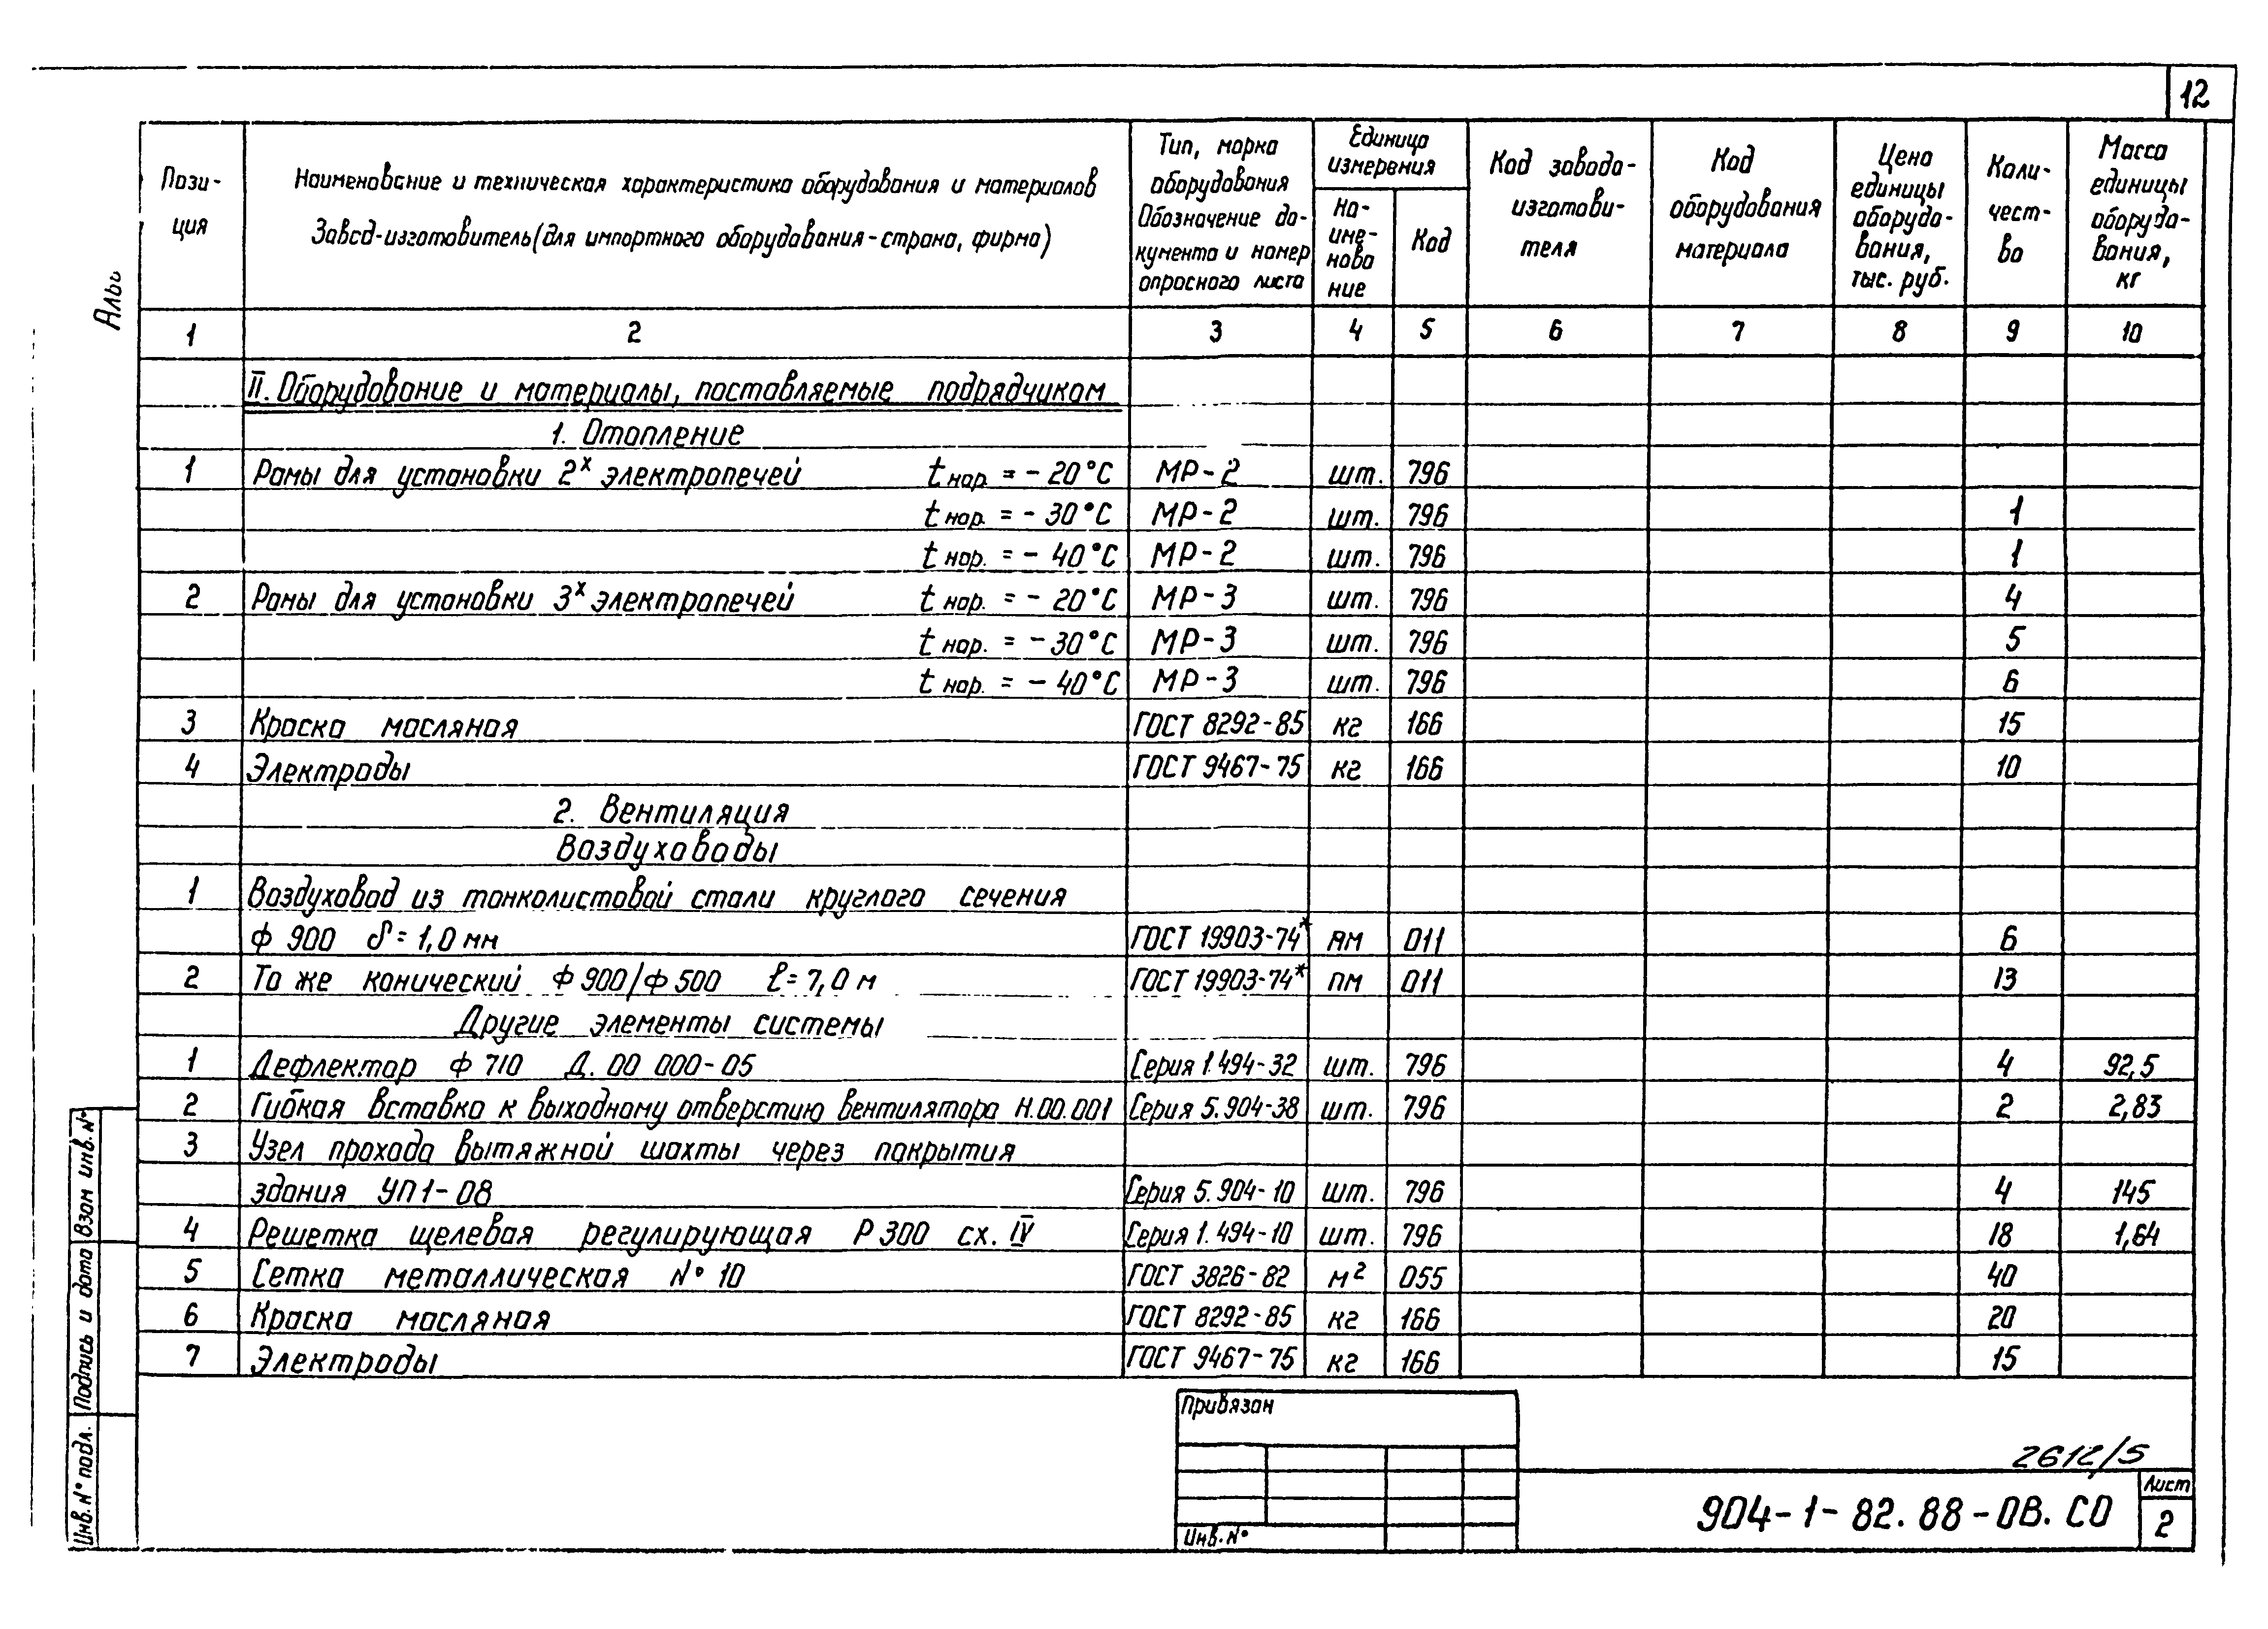 12
Пози-
ция
Наименование и техническая характеристика оборудования и материалов
Завод-изготовитель (для импортного оборудования - страна, фирма)
Тип, марка
оборудования
Обозначение до-
кумента и номер
опросного листа
Единица
измерения
На-
име-
нова
ние
Код
Код завода-
изготови-
теля
Код
оборудования
материала
Цена
единицы
оборудо-
вания,
тыс. руб.
Коли-
чест-
во
Масса
единицы
оборудо-
вания,
кг
1 2 3 4 5 6 7 8 9 10
II. Оборудование и материалы, поставляемые подрядчиком
1. Отопление
1 Рамы для установки 2х электропечей t нар. = - 20°С МР-2 шт. 796
t нар. = - 30°С МР-2 шт. 796 1
t нар. = - 40°С МР-2 шт. 796 1
2 Рамы для установки 3х электропечей t нар. = - 20°С МР-3 шт. 796 4
t нар. = - 30°С МР-3 шт. 796 5
t нар. = - 40°С МР-3 шт. 796 6
3 Краска масляная ГОСТ 8292-85 кг 166 15
4 Электроды ГОСТ 9467-75 кг 166 10
2. Вентиляция
Воздуховоды
1 Воздуховод из тонколистовой стали круглого сечения
ф 900 δ = 1,0 мм ГОСТ 19903-74* пм 011 6
2 То же конический ф 900/ф 500 ℓ = 7,0 м ГОСТ 19903-74* пм 011 13
Другие элементы системы
1 Дефлектор ф 710 Д. 00 000-05 Серия 1.494-32 шт. 796 4 92,5
2 Гибкая вставка к выходному отверстию вентилятора Н.00.001 Серия 5.904-38 шт. 796 2 2,83
3 Узел прохода вытяжной шахты через покрытия
здания УП1-08 Серия 5.904-10 шт. 796 4 145
4 Решетка щелевая регулирующая Р 300 сх. IV Серия 1.494-10 шт. 796 18 1,64
5 Сетка металлическая № 10 ГОСТ 3826-82 м² 055 40
6 Краска масляная ГОСТ 8292-85 кг 166 20
7 Электроды ГОСТ 9467-75 кг 166 15
Взам инв. №
Подпись и дата
Инв. № подл.
Привязан
Инв. №
2612/5
904-1-82.88-ОВ.СО
Лист
2